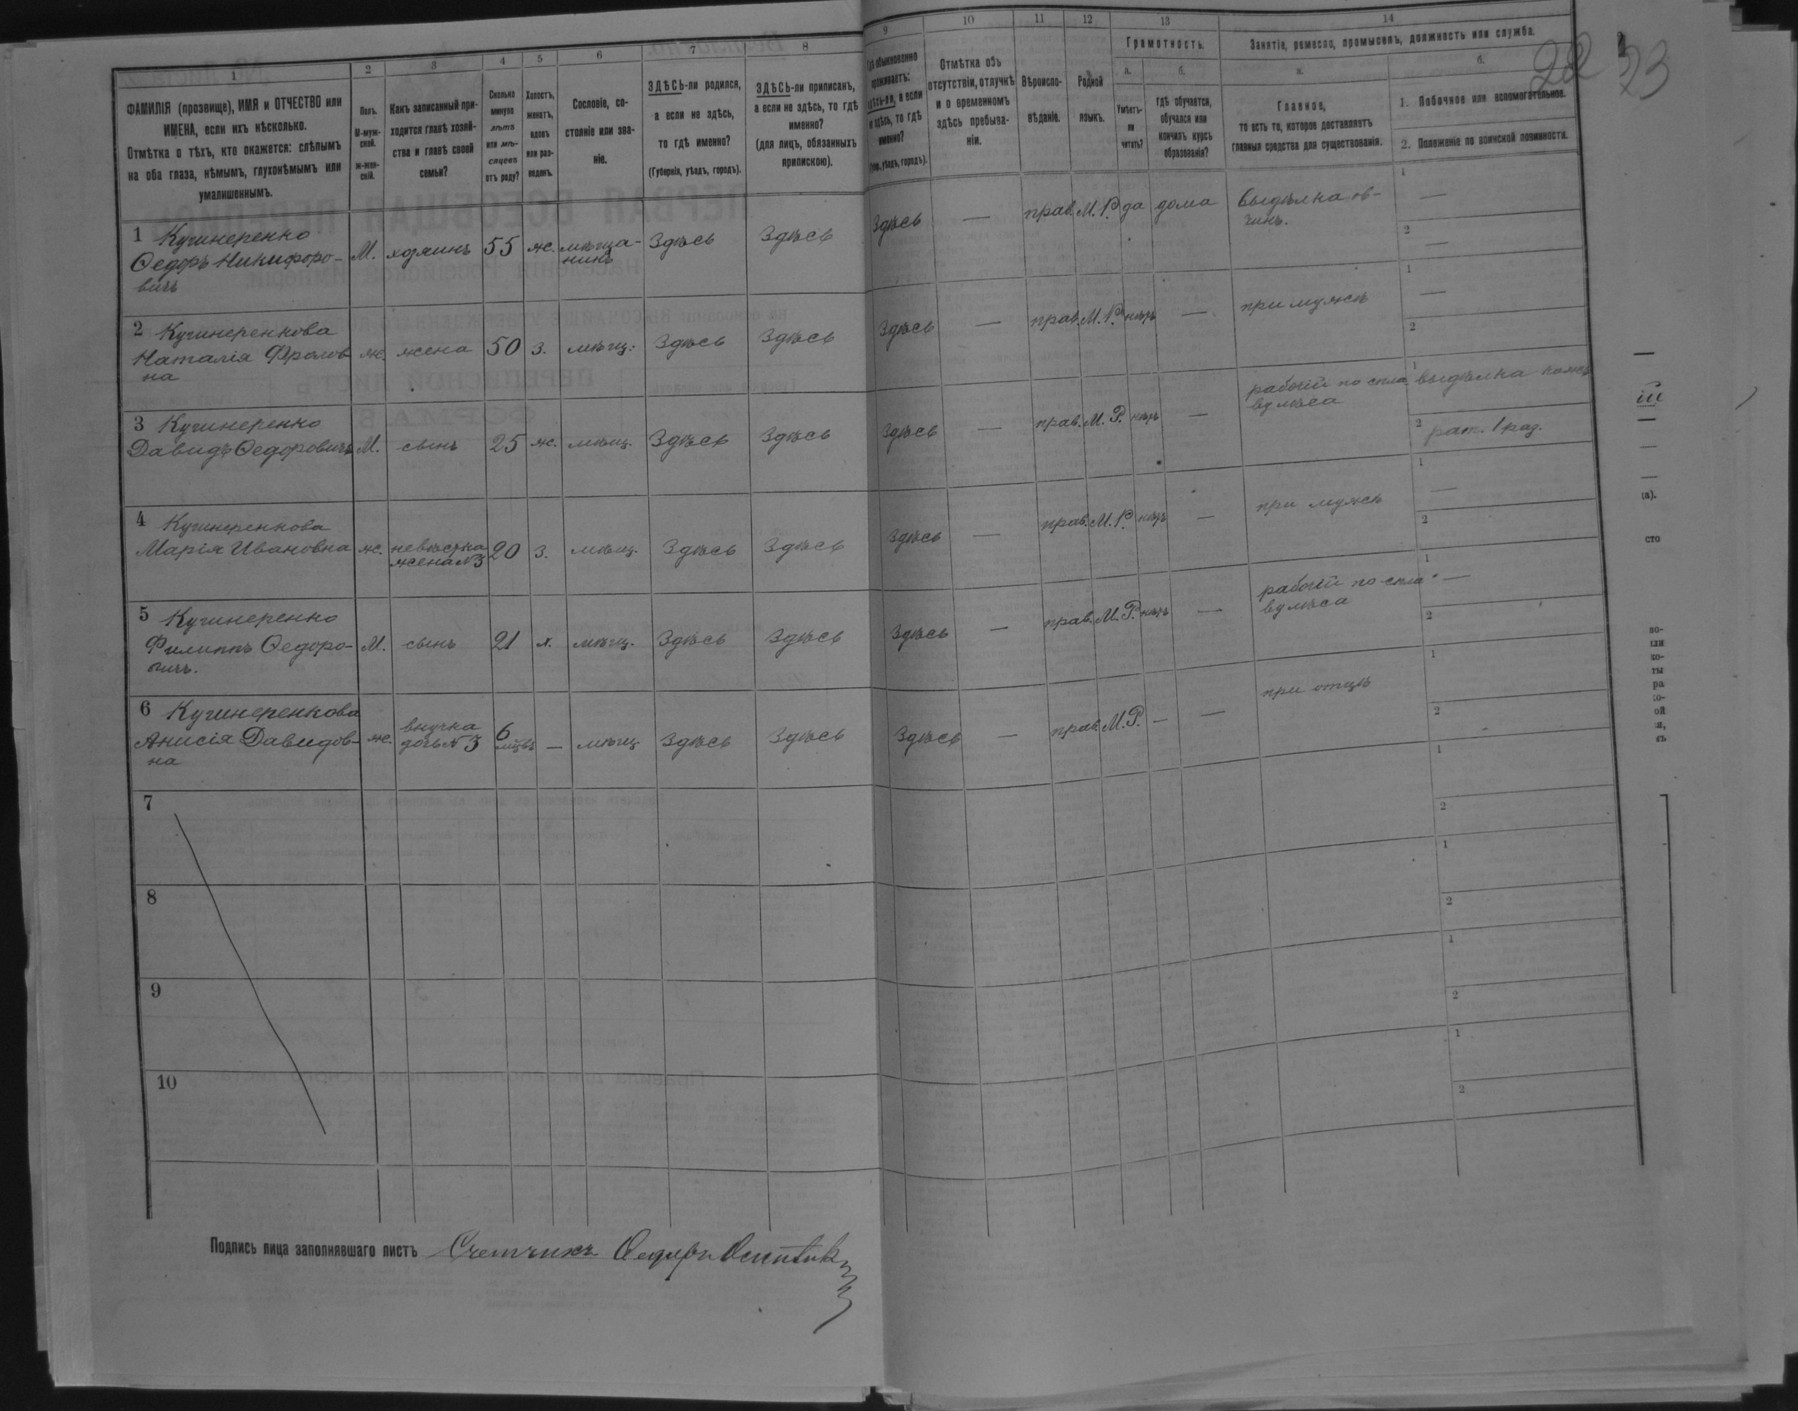 1
2
3
4
5
6
7
8
ФАМИЛІЯ (прозвище), ИМЯ и ОТЧЕСТВО или
ИМЕНА, если ихъ нѣсколько.
Отмѣтка о тѣхъ, кто окажется: слѣпымъ
на оба глаза, нѣмымъ, глухонѣмымъ или
умалишеннымъ.
Полъ.
М-муж-
ской.
ж-жен-
скій.
Какъ записанный при-
ходится главѣ хозяй-
ства и главѣ своей
семьи?
Сколько
минуло
лѣтъ
или мѣ-
сяцевъ
отъ роду?
Холостъ,
женатъ,
вдовъ
или раз-
веденъ.
Сословіе, со-
стояніе или зва-
ніе.
ЗДѢСЬ-ли родился,
а если не здѣсь,
то гдѣ именно?
(Губернія, уѣздъ, городъ).
ЗДѢСЬ-ли приписанъ,
а если не здѣсь, то гдѣ
именно?
(для лицъ, обязанныхъ
припискою).
1 Кучинеренко
Ѳедоръ Никифоро-
вичъ
М. хозяинъ 55 ж. мѣща-
нинъ
Здѣсь Здѣсь
2 Кучинеренкова
Наталія Фролов
на
ж. жена 50 З. мѣщ. Здѣсь Здѣсь
3 Кучинеренко
Давидъ Ѳедоровичъ М. сынъ 25 ж. мѣщ. Здѣсь Здѣсь
4 Кучинеренкова
Марія Ивановна ж. невѣстка
жена №3
20 З. мѣщ. Здѣсь Здѣсь
5 Кучинеренко
Филиппъ Ѳедоро-
вичъ.
М. сынъ 21 х. мѣщ. Здѣсь Здѣсь
6 Кучинеренкова
Анисія Давидов-
на
ж. внучка
дочь №3
6
— мѣщ. Здѣсь Здѣсь
7
8
9
10
Подпись лица заполнявшаго листъ Счетчикъ Ѳедоръ
9
10
11
12
13
14
22 23
Гдѣ обыкновенно
проживаетъ:
здѣсь-ли, а если
не здѣсь, то гдѣ
именно?
(Губ., уѣздъ, городъ).
Отмѣтка объ
отсутствіи, отлучкѣ
и о временномъ
здѣсь пребыва-
ніи.
Вѣроиспо-
вѣданіе.
Родной
языкъ.
Грамотность.
а.
б.
Умѣетъ-
ли
читать?
гдѣ обучается,
обучался или
кончилъ курсъ
образованія?
Занятіе, ремесло, промыселъ, должность или служба.
а.
б.
Главное,
то есть то, которое доставляетъ
главныя средства для существованія.
1. Побочное или вспомогательное.
2. Положеніе по воинской повинности.
Здѣсь — прав. М.Р. да дома выдѣлка ов-
чинъ.
1 —
2 —
Здѣсь — прав. М.Р. нѣтъ — при мужѣ
1 —
2
Здѣсь — прав. М.Р. нѣтъ — рабочій по спла
ву лѣса
1 выдѣлка кожъ
2 рат. 1 раз.
Здѣсь — прав. М.Р. нѣтъ — при мужѣ
1 —
2
Здѣсь — прав. М.Р. нѣтъ — рабочій по спла
ву лѣса
1 —
2
Здѣсь — прав. М.Р. — — при отцѣ
1
2
1
2
1
2
1
2
1
2